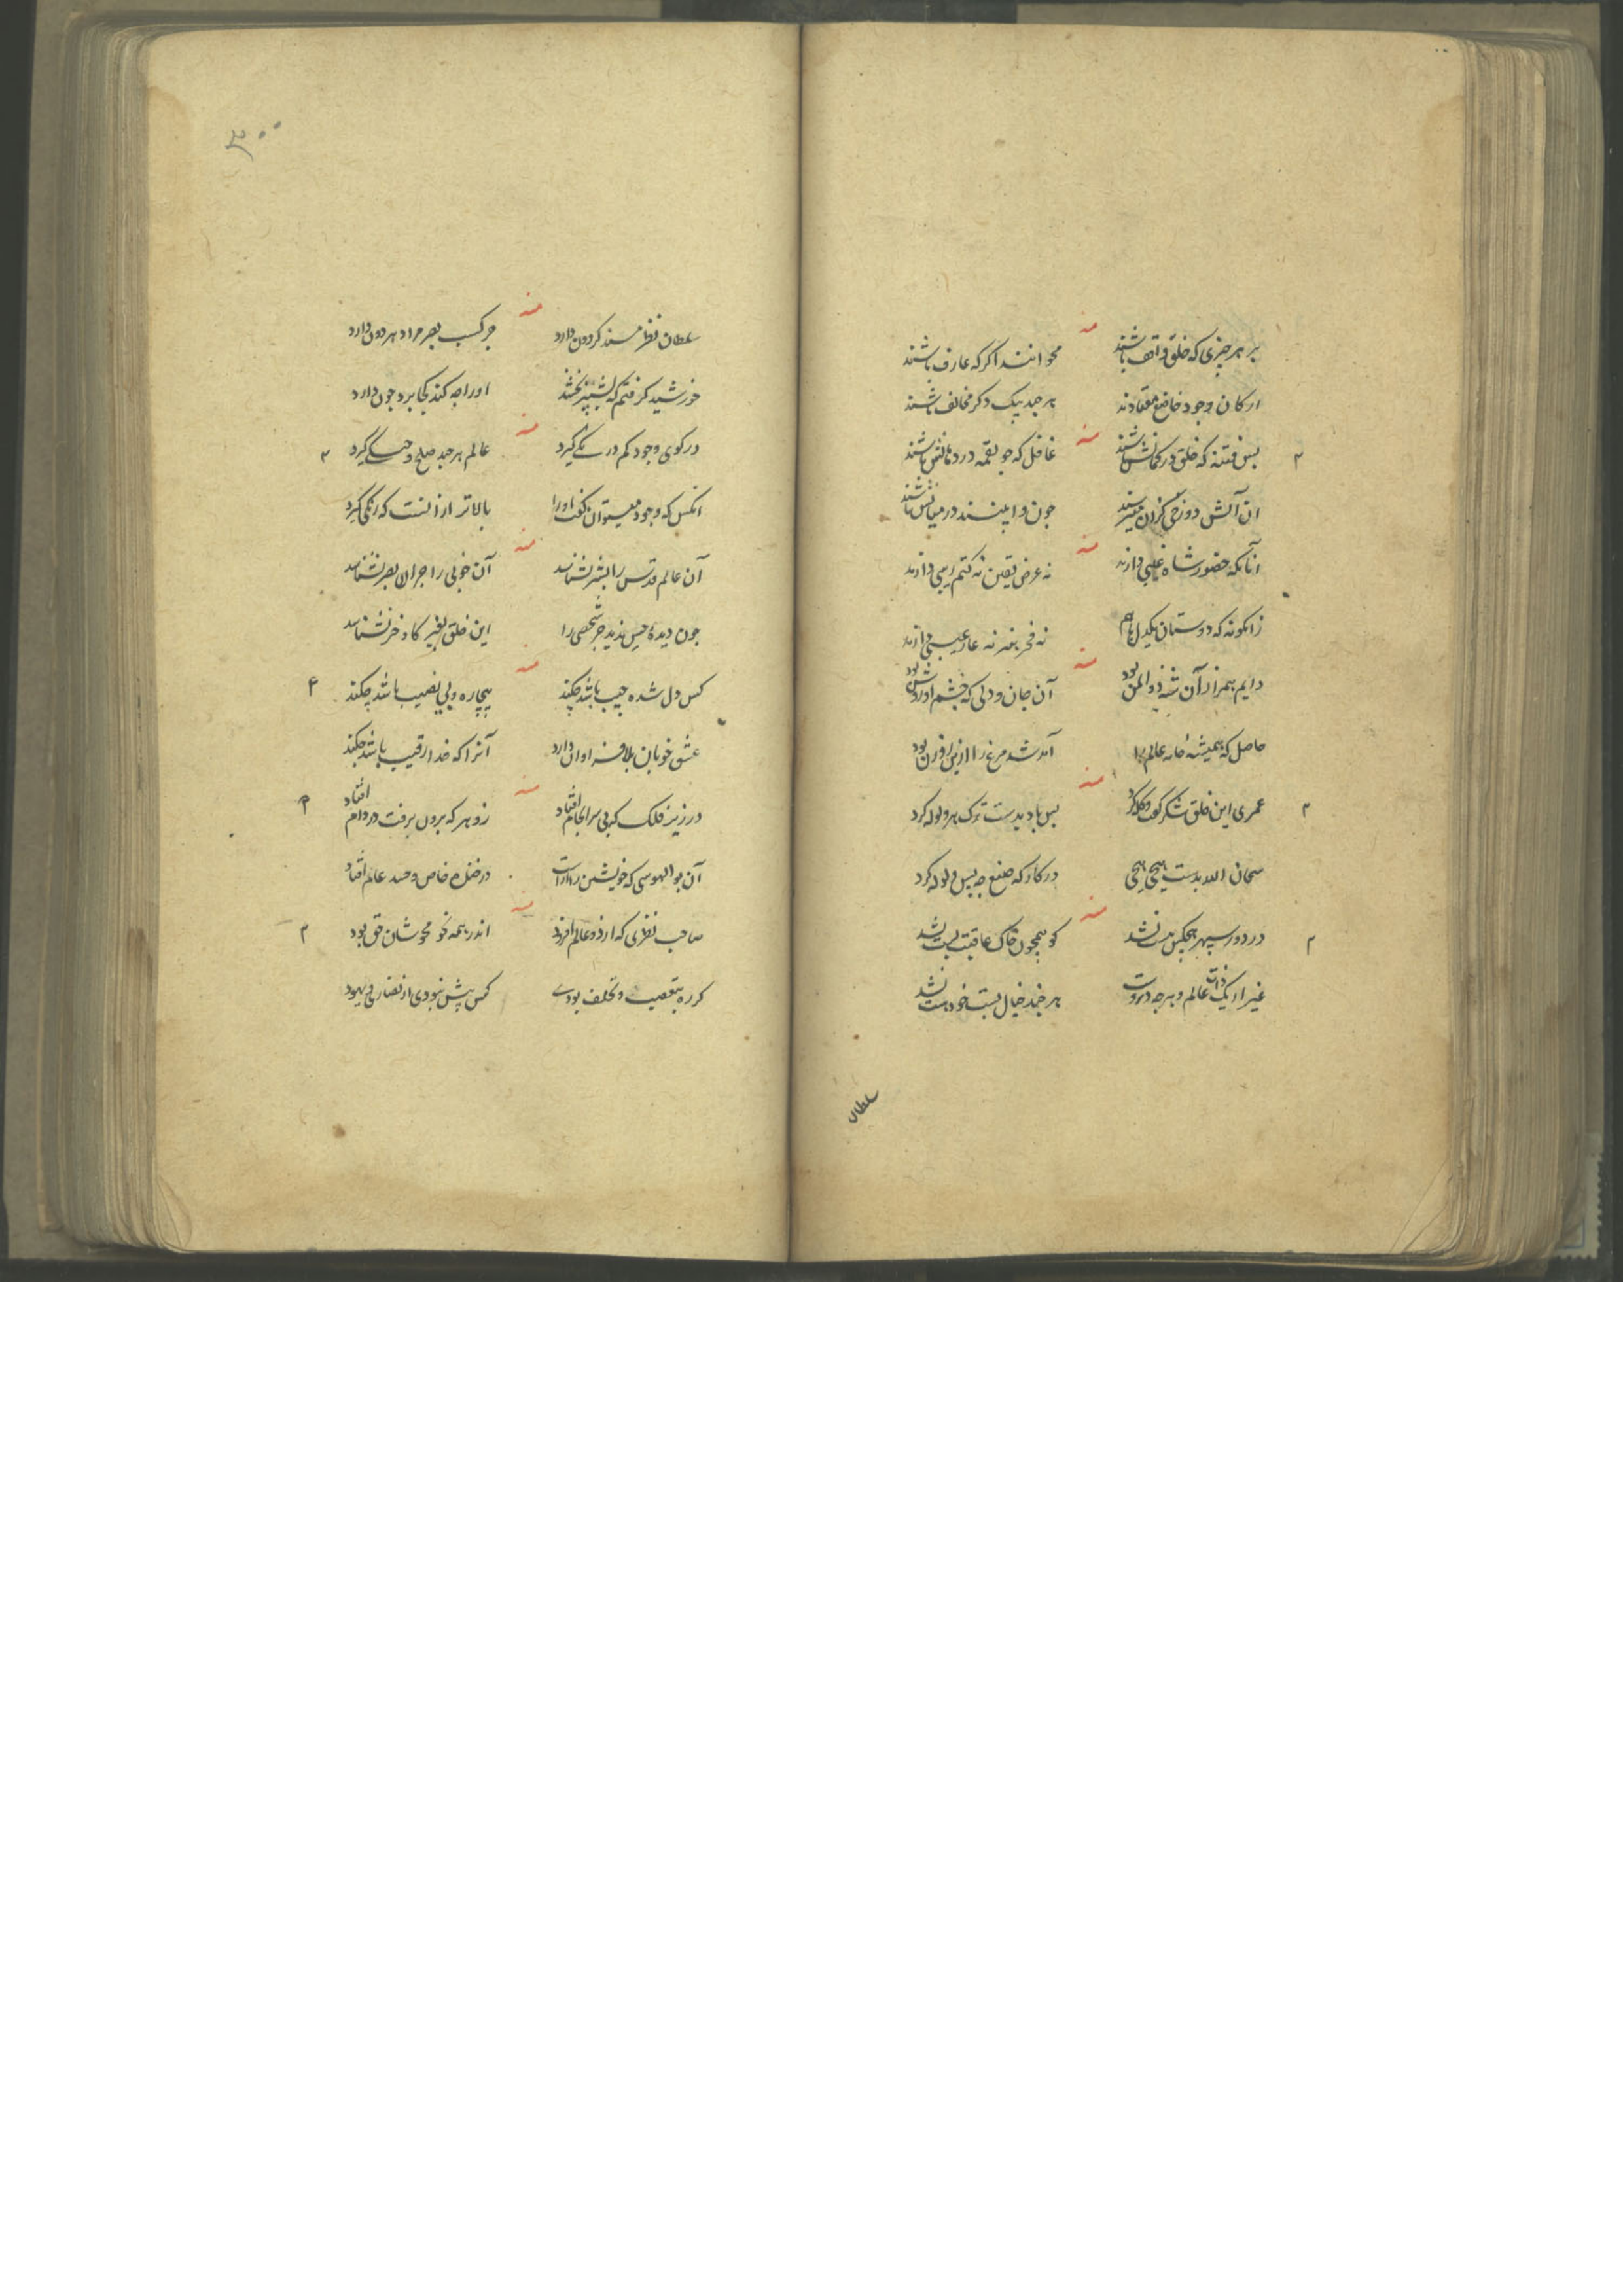 منه
بر هر چیزی که خلق واقف باشند محو انند اکر که عارف باشند
ارکان وجود خاضع معتادند هر چند بیک دکر مخالف باشند
منه
بس فتنه که خلق در کمانش باشند غافل که جو لقمه در دهانش باشند
ان آتش دوزخی کزان میترسند جون وابینند در میانش باشند
منه
آنانکه حضور شاه غیبی دارند نه عرض یقین نه کتم ریبی دارند
زانکونه که دوستان یکدل باهم نه فخر بهنر نه عار عیبی دارند
منه
دایم همراز آن شه ذو المن بود آن جان و دلی که چشم او روشن بود
حاصل که همیشه خانه عالم را آمد شد مرغ را ازین روزن بود
منه
عمری این خلق شکر گفت و کله کرد بس باد بدست ترک هر ولوله کرد
سبحان الله بدست هیچی هیچی در کارکه صنع چه بس ولوله کرد
منه
در دور سپهر هیچکس هست نشد کو همچون خاک عاقبت پست نشد
غیر از یک ذات عالم و هرچه دروست هر چند خیال بست خود هست نشد
سلطان
۳۰۰
منه
سلطان نظر مسند کردون دارد جر کسب بصر مراد هر دون دارد
خورشید کرفتم که بشپر بخشند اورا چه کند کجا برد جون دارد
منه
در کوی وجود کم در یکی گیرد عالم هر چند صلح و جنگی گیرد
انکس که وجود میتوان گفت اورا بالاتر از انست که رنگی گیرد
منه
آن عالم قدس را بشر نشناسد آن خوبی را جز آن بصر نشناسد
جون دیده حس ندید جر شخصی را این خلق بغیر کاو خر نشناسد
منه
کس دل شده حبیب باشد چکند بیچاره و بی نصیب باشد چکند
عشق خوبان بلا فراوان دارد آنرا که خدا رقیب باشد چکند
منه
در زیر فلک که بی سرانجام افتاد زو هر که برون برفت در دام افتاد
آن بو الهوسی که خویشتن را اراست در خنده خاص و صد عالم افتاد
منه
صاحب نظری که از دو عالم افزود اندر همه نحو محوشان حق بود
کر ره بتعصب و تخلف بودی کس پیش نبودی از نصاری و یهود